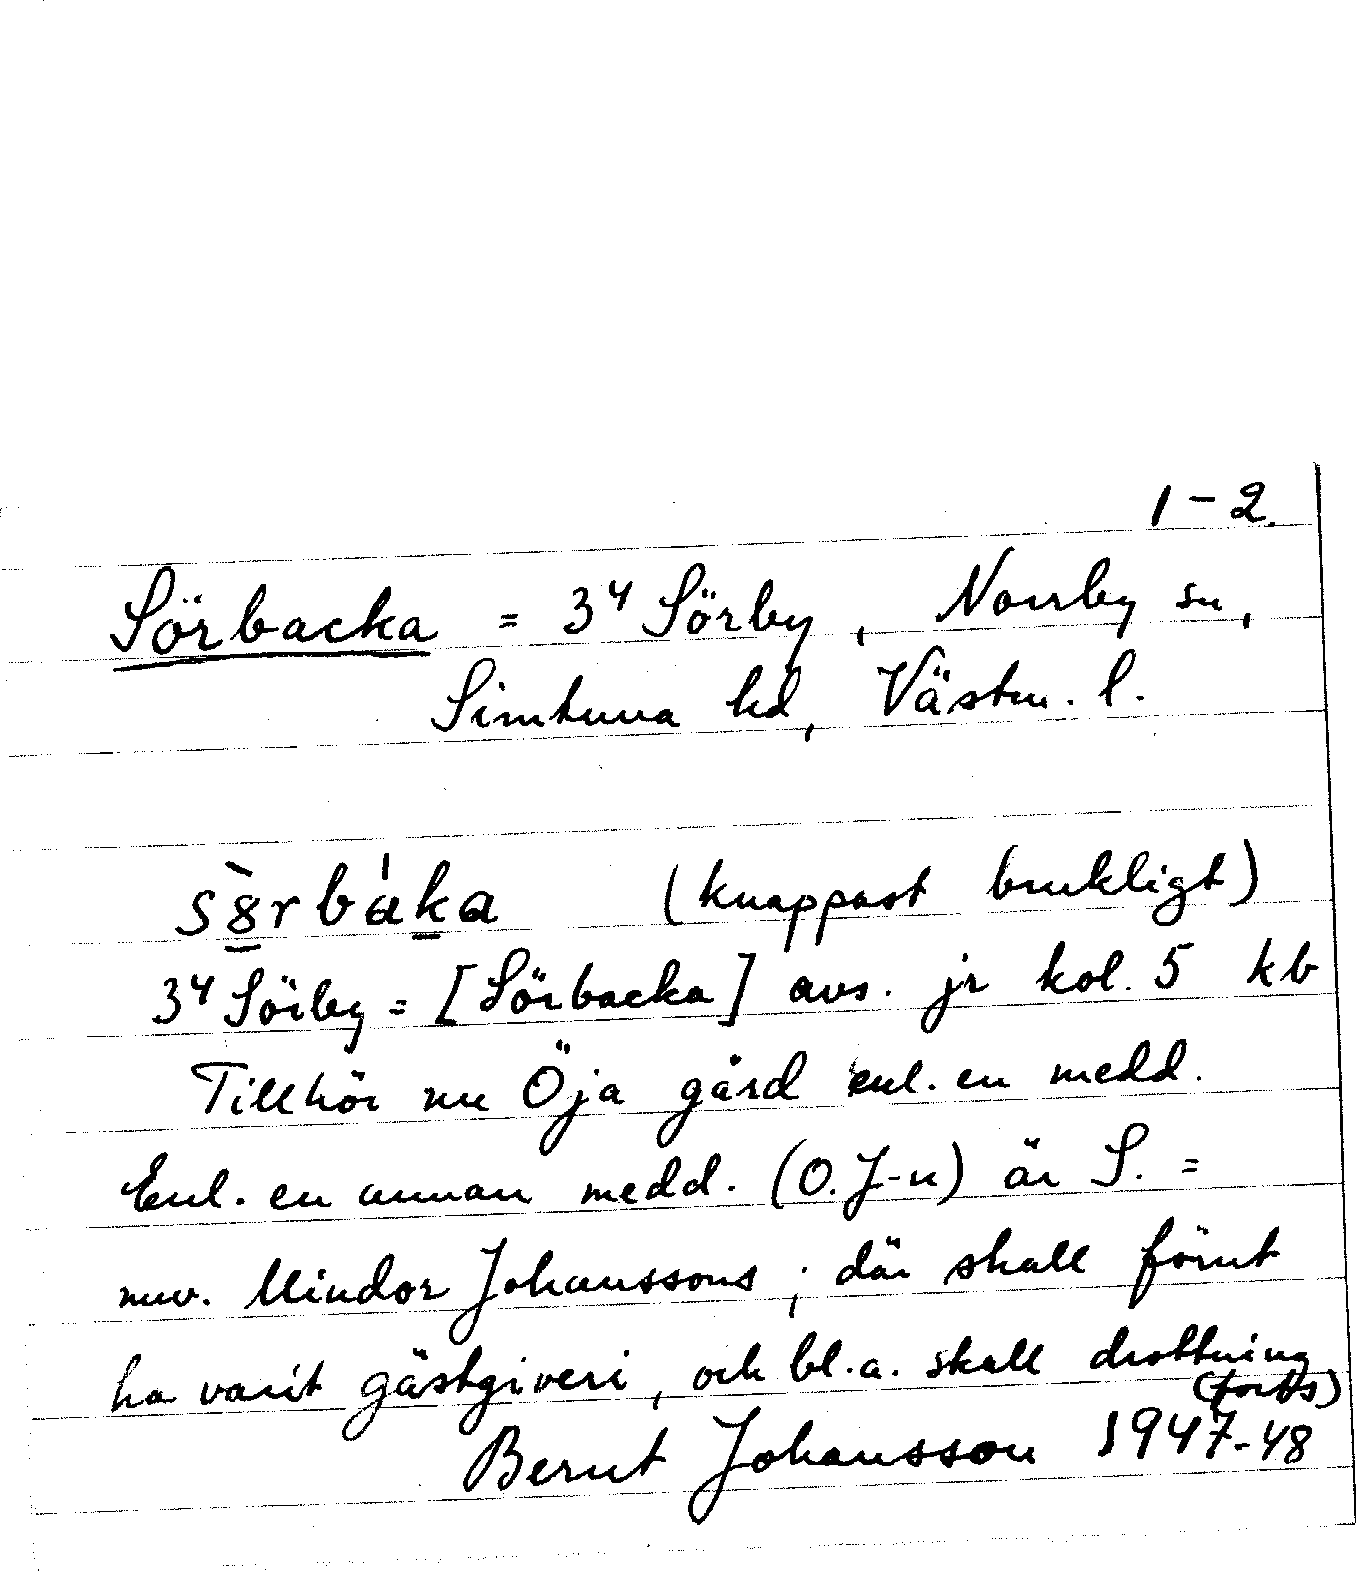 1-2.
Sörbacka = 3⁴ Sörby, Norrby sn,
Simtuna hd, Västm. l.
(knappast brukligt)
3⁴ Sörby = [Sörbacka] avs. jr kol. 5 kb
Tillhör nu Öja gård enl. en medd.
Enl. en annan medd. (O.J-n) är S. =
nuv. Mindor Johanssons; där skall förut
ha varit gästgiveri, och bl.a. skall drottning
(forts)
Bernt Johansson 1947-48